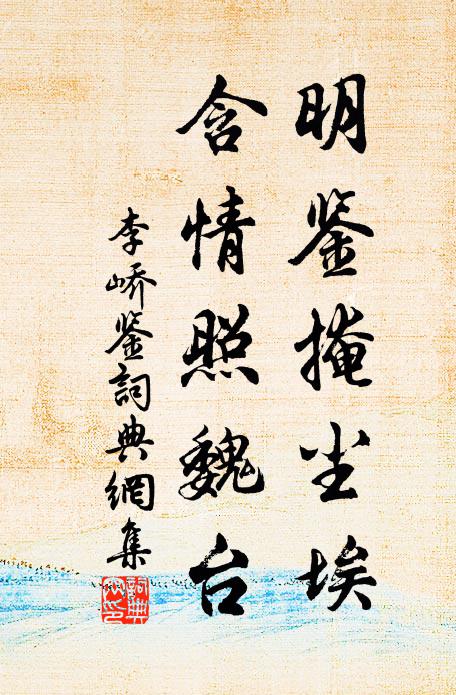 明鉴掩尘埃
含情照魏台
李峤鉴詞典網集